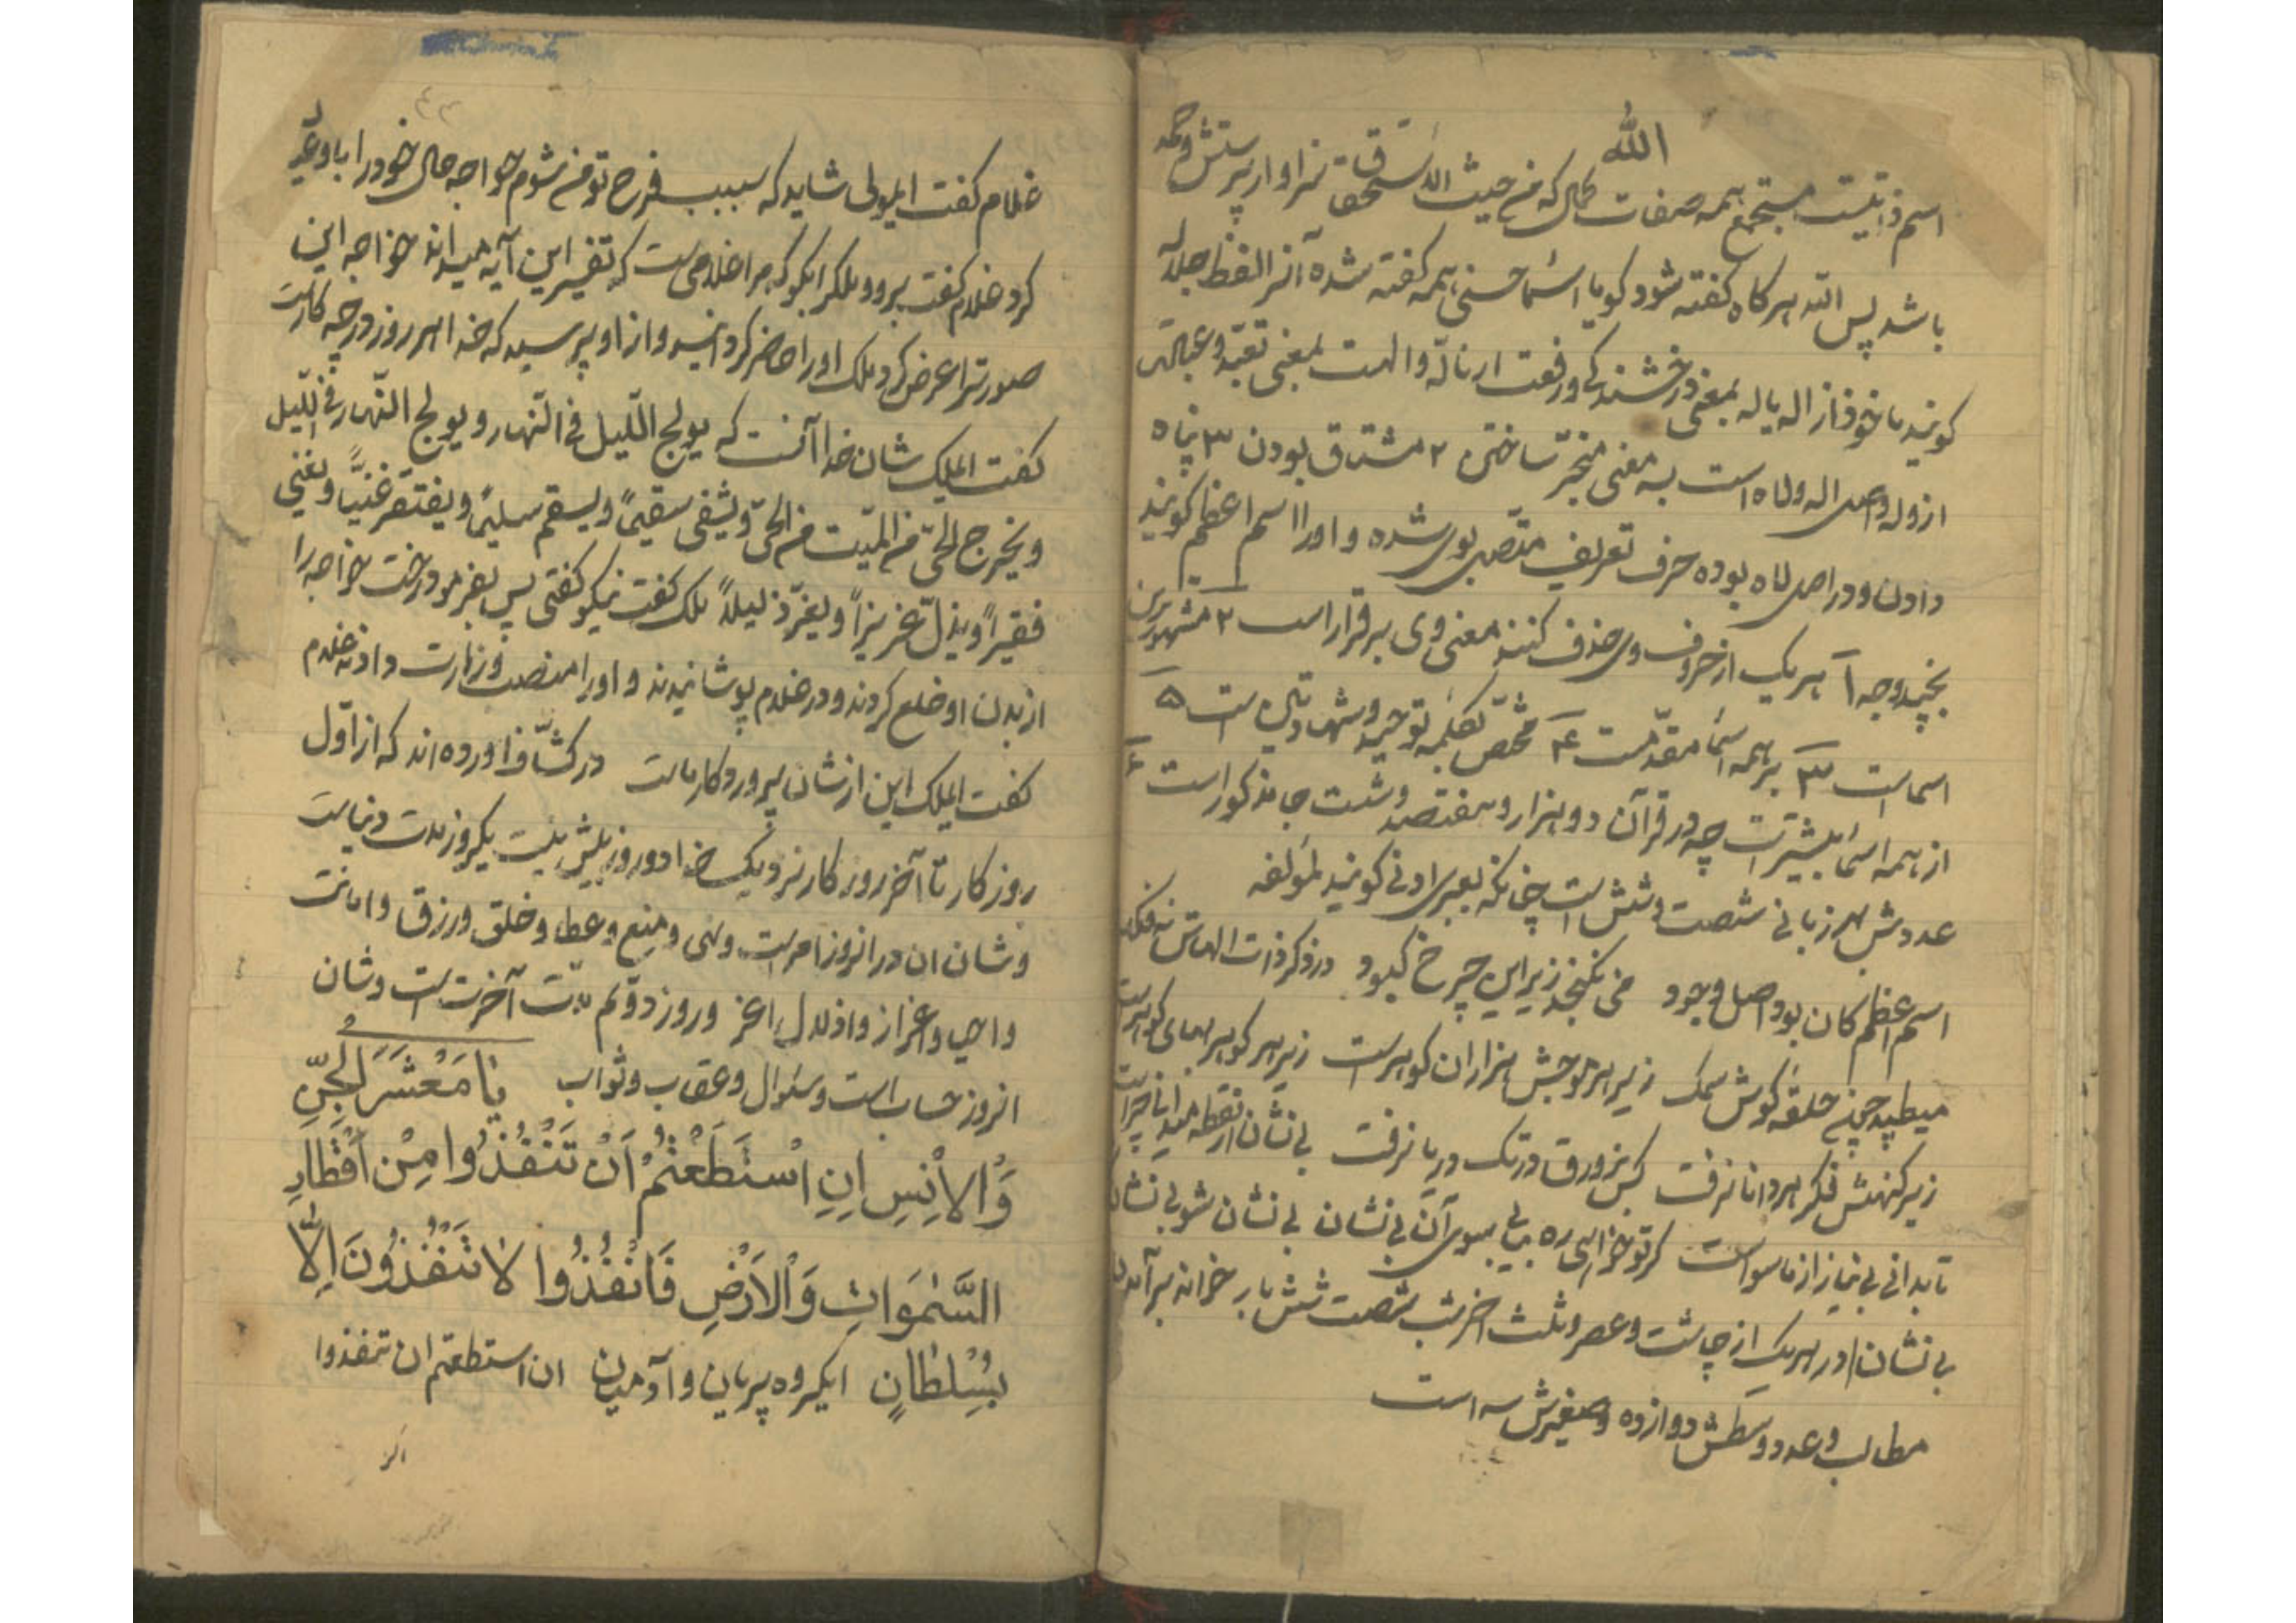 الله
اسم ذاتیست مستجمع همه صفات کمال که من حیث الذات مستحق سزاوار پرستش و حمد
باشد پس الله هرکاه کفته شود کویا اسماء حسنی همه کفته شده آنرا لفظ جلاله
کویند ماخوذ از اله یاله بمعنی درخشندکی و رفعت از تاله والهت بمعنی تعبد و عبادت
از وله و اصل اله ولاه است به معنی متحیر ساختن ۲ مشتاق بودن ۳ پناه
دادن و در اصل لاه بوده حرف تعریف متصل بوی شده و او را اسم اعظم کویند
بچند وجه ۱ هر یک از حروف وی حذف کنند معنی وی برقرار است ۲ مشهورترین
اسماست ۳ بر همه اسماء مقدّمست ۴ مختص بکلمه توحید و شهادتین است ۵
از همه اسماء بیشترست چه در قرآن دو هزار و هفتصد و شست جا مذکور است ۶
عددش بهر زبانی شصت و شش است چنانکه بعبری ادنی کویند لمؤلفه
اسم اعظم کان بود اصل وجود می نکنجد زیر این چرخ کبود
میطپد چون حلقه کوش سمک زیر هر موجش هزاران کوهرست زیر هر کوهر بهای کوهرست
زیر کنهش فکر هر دانا نرفت کس بزورق در تک دریا نرفت بی نشان از نقطه
تا بدانی بی نیاز از ماسواست کر تو خواهی ره بیابی سوی آن بی نشان بی نشان شو بی نشان
بی نشان / در هر یک از چاشت و عصر و ثلث اخر شب شصت شش بار خواند برآمدن
مطالب و عدد وسطش دوازده و صغیرش سه است
غلام کفت ایمولی شاید که سبب فرح تو من شوم خواجه حال خود را با وی
کرد غلام کفت برو و بملک بکو که مرا غلامی ست که تفسیر این آیه میداند خواجه این
صورترا عرض کرد ملک او را حاضر کردانید و از او پرسید که خدا هر روز در چه کارست
کفت ایملک شان خدا آنست که یولج اللّیل فی النّهار و یولج النّهار فی اللّیل
ویخرج الحیّ من المیّت من الحیّ ویشفی سقیماً ویسقم سلیماً ویفتقر غنیّاً ویغنی
فقیراً ویذلّ عزیزاً ویعزّ ذلیلاً ملک کفت نیکو کفتی پس بفرمود رخت خواجه را
از بدن او خلع کردند و در غلام پوشانیدند و او را منصب وزارت دادند غلام
کفت ایملک این از شان پروردکار ماست در کشّاف اورده اند که از اوّل
روزکار تا آخر روزکار نزدیک خدا دو روز بیش نیست یکروز مدت دنیاست
وشان ان در انروز امر است و نهی و منع و عطا و خلق و رزق و اماتت
و احیا و اعزاز و اذلال و روز دویم مدّت آخرت است و شان
انروز حساب است و سئوال و عقاب و ثواب یَا مَعْشَرَ الْجِنِّ
وَالاِنْسِ اِنِ اسْتَطَعْتُمْ اَنْ تَنْفُذُوا مِنْ اَقْطَارِ
السَّمٰوَاتِ وَالْاَرْضِ فَانْفُذُوا لَا تَنْفُذُونَ اِلَّا
بِسُلْطَانٍ ایکروه پریان و آدمیان ان استطعتم ان تنفذوا
اکر